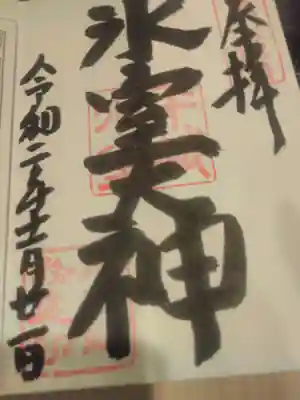 奉拝
氷室天神
令和二年十一月廿一日